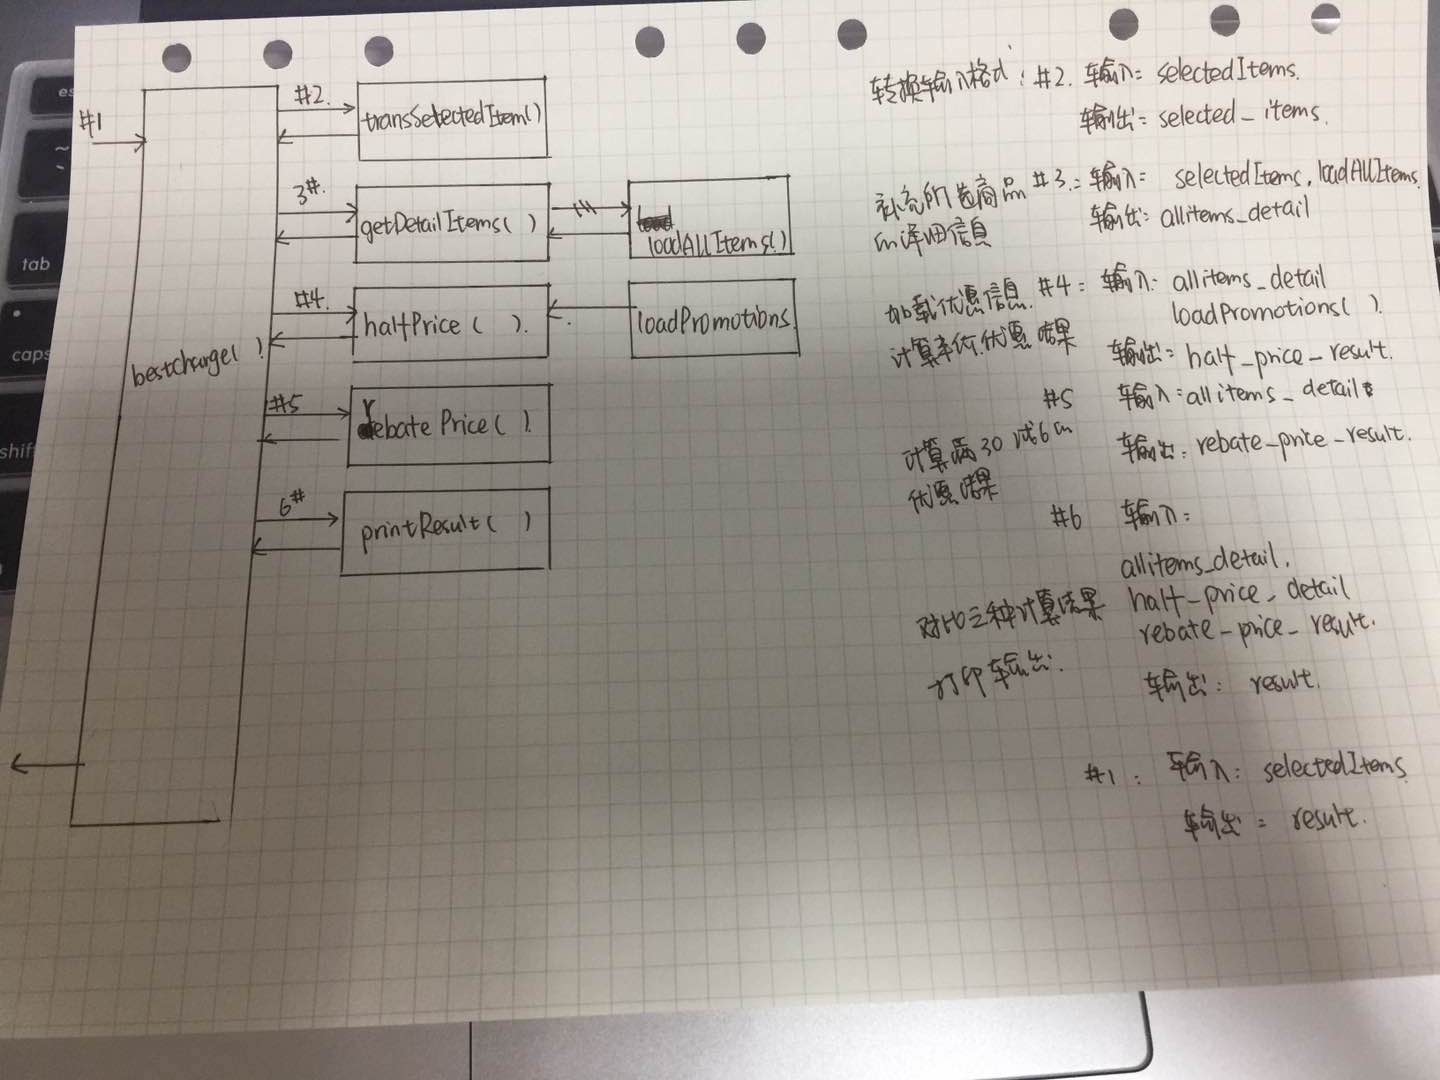 #1
#2.
transSelectedItem()
3#.
getDetailItems( )
loadAllItems()
#4.
halfPrice( ).
loadPromotions.
bestcharge( )
#5
rebate Price( ).
6#
printResult( )
转换输入格式: #2. 输入: selectedItems.
输出: selected_items.
补充所选商品 #3.: 输入: selectedItems, loadAllItems.
的详细信息 输出: allitems_detail
加载优惠信息. #4: 输入: allitems_detail
loadPromotions( ).
计算半价优惠结果 输出: half_price_result.
#5 输入: allitems_detail.
计算满30减6的 输出: rebate_price_result.
优惠结果
#6 输入:
allitems_detail.
对比三种计算结果 half_price_detail
rebate_price_result.
打印输出. 输出: result.
#1: 输入: selectedItems.
输出: result.
esc
tab
caps
shift